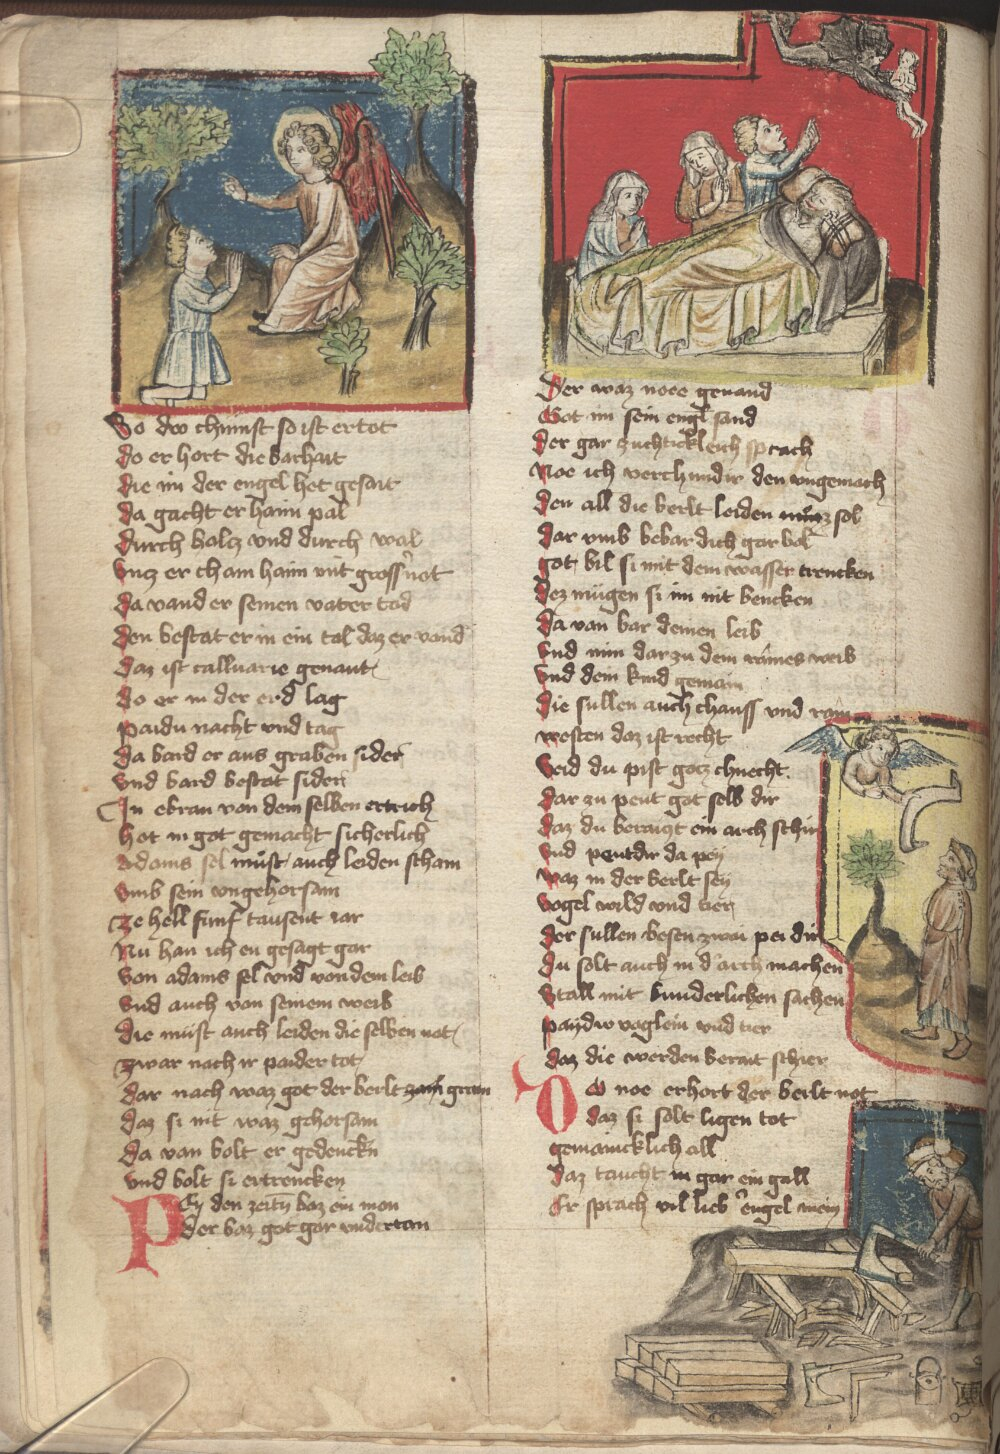 So dw chumst so ist er tot
do er hort die barhait
die im der engel het gesait
da gacht er haim pal
durch holcz vnd durch wal
vncz er cham haim mit grosser not
da vand er seinen vater tod
den bestat er in ein tal daz er vand
daz ist calluarie genant
do er in der erd lag
paidu nacht vnd tag
da bard er aus graben sider
vnd bard bestat sider
In ebran von dem selben ertrich
Hot in got gemacht sicherlich
adams sel muͤst auch leiden scham
vmb sein vngehorsam
ze hell funf tausent iar
Nu han ich eu gesagt gar
von adams sel vnd von dem leib
vnd auch von seinem weib
die muͤst auch leiden die selben not
zwar nach ir paider tot
dar nach waz got der berlt gram
daz si nit waz gehorsam
da van bolt er gedencken
vnd bolt si ertrencken
Pey den zeitn baz ein man
der baz got gar vndertan
Der waz noee genand
Got im sein engl sand
der gar zuchtickleich sprach
Noe ich verchund dir den vngemach
den all die berlt leiden muͤz sol
dar vmb bebar dich gar bol
got bil si mit dem wasser trencken
dez mügen si im nit bencken
da van bar deinen leib
vnd nim dar zu dein raines weib
vnd dein kind gemain
die sullen auch chausch vnd rain
westen daz ist recht
Seid du pist gocz chnecht
dar zu peut got selb dir
daz du beraitzt ein arch schir
vnd peut dir da pey
waz in der berlt sey
vogel wild vnd tier
der sullen besen zwai pei dir
du solt auch in der arch machen
Stall mit bunderlichen sachen
paydw voglein vnd tier
daz die werden berait schier
Do noe erhort der berlt not
daz si solt ligen tot
gemainicklich all
daz taucht in gar ein gall
Er sprach vil lieber engel mein